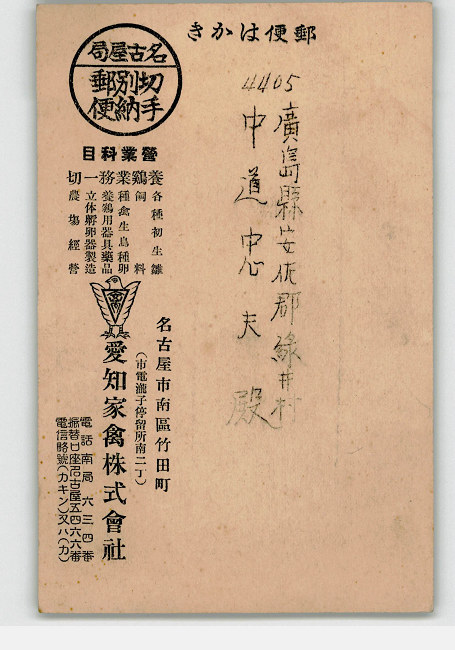 郵便はかき
4405
廣島縣安佐郡緑井村
中道忠夫殿
名古屋局
切手別納郵便
營業科目
養鷄業務一切
各種初生雛
飼料
種禽生鳥種卵
養鷄用器具藥品
立体孵卵器製造
農塲經營
名古屋市南區竹田町
(市電瀧子停留所南二丁)
愛知家禽株式會社
電話南局六三四番
振替口座名古屋五四六六番
電信略號(カキン)又ハ(カ)